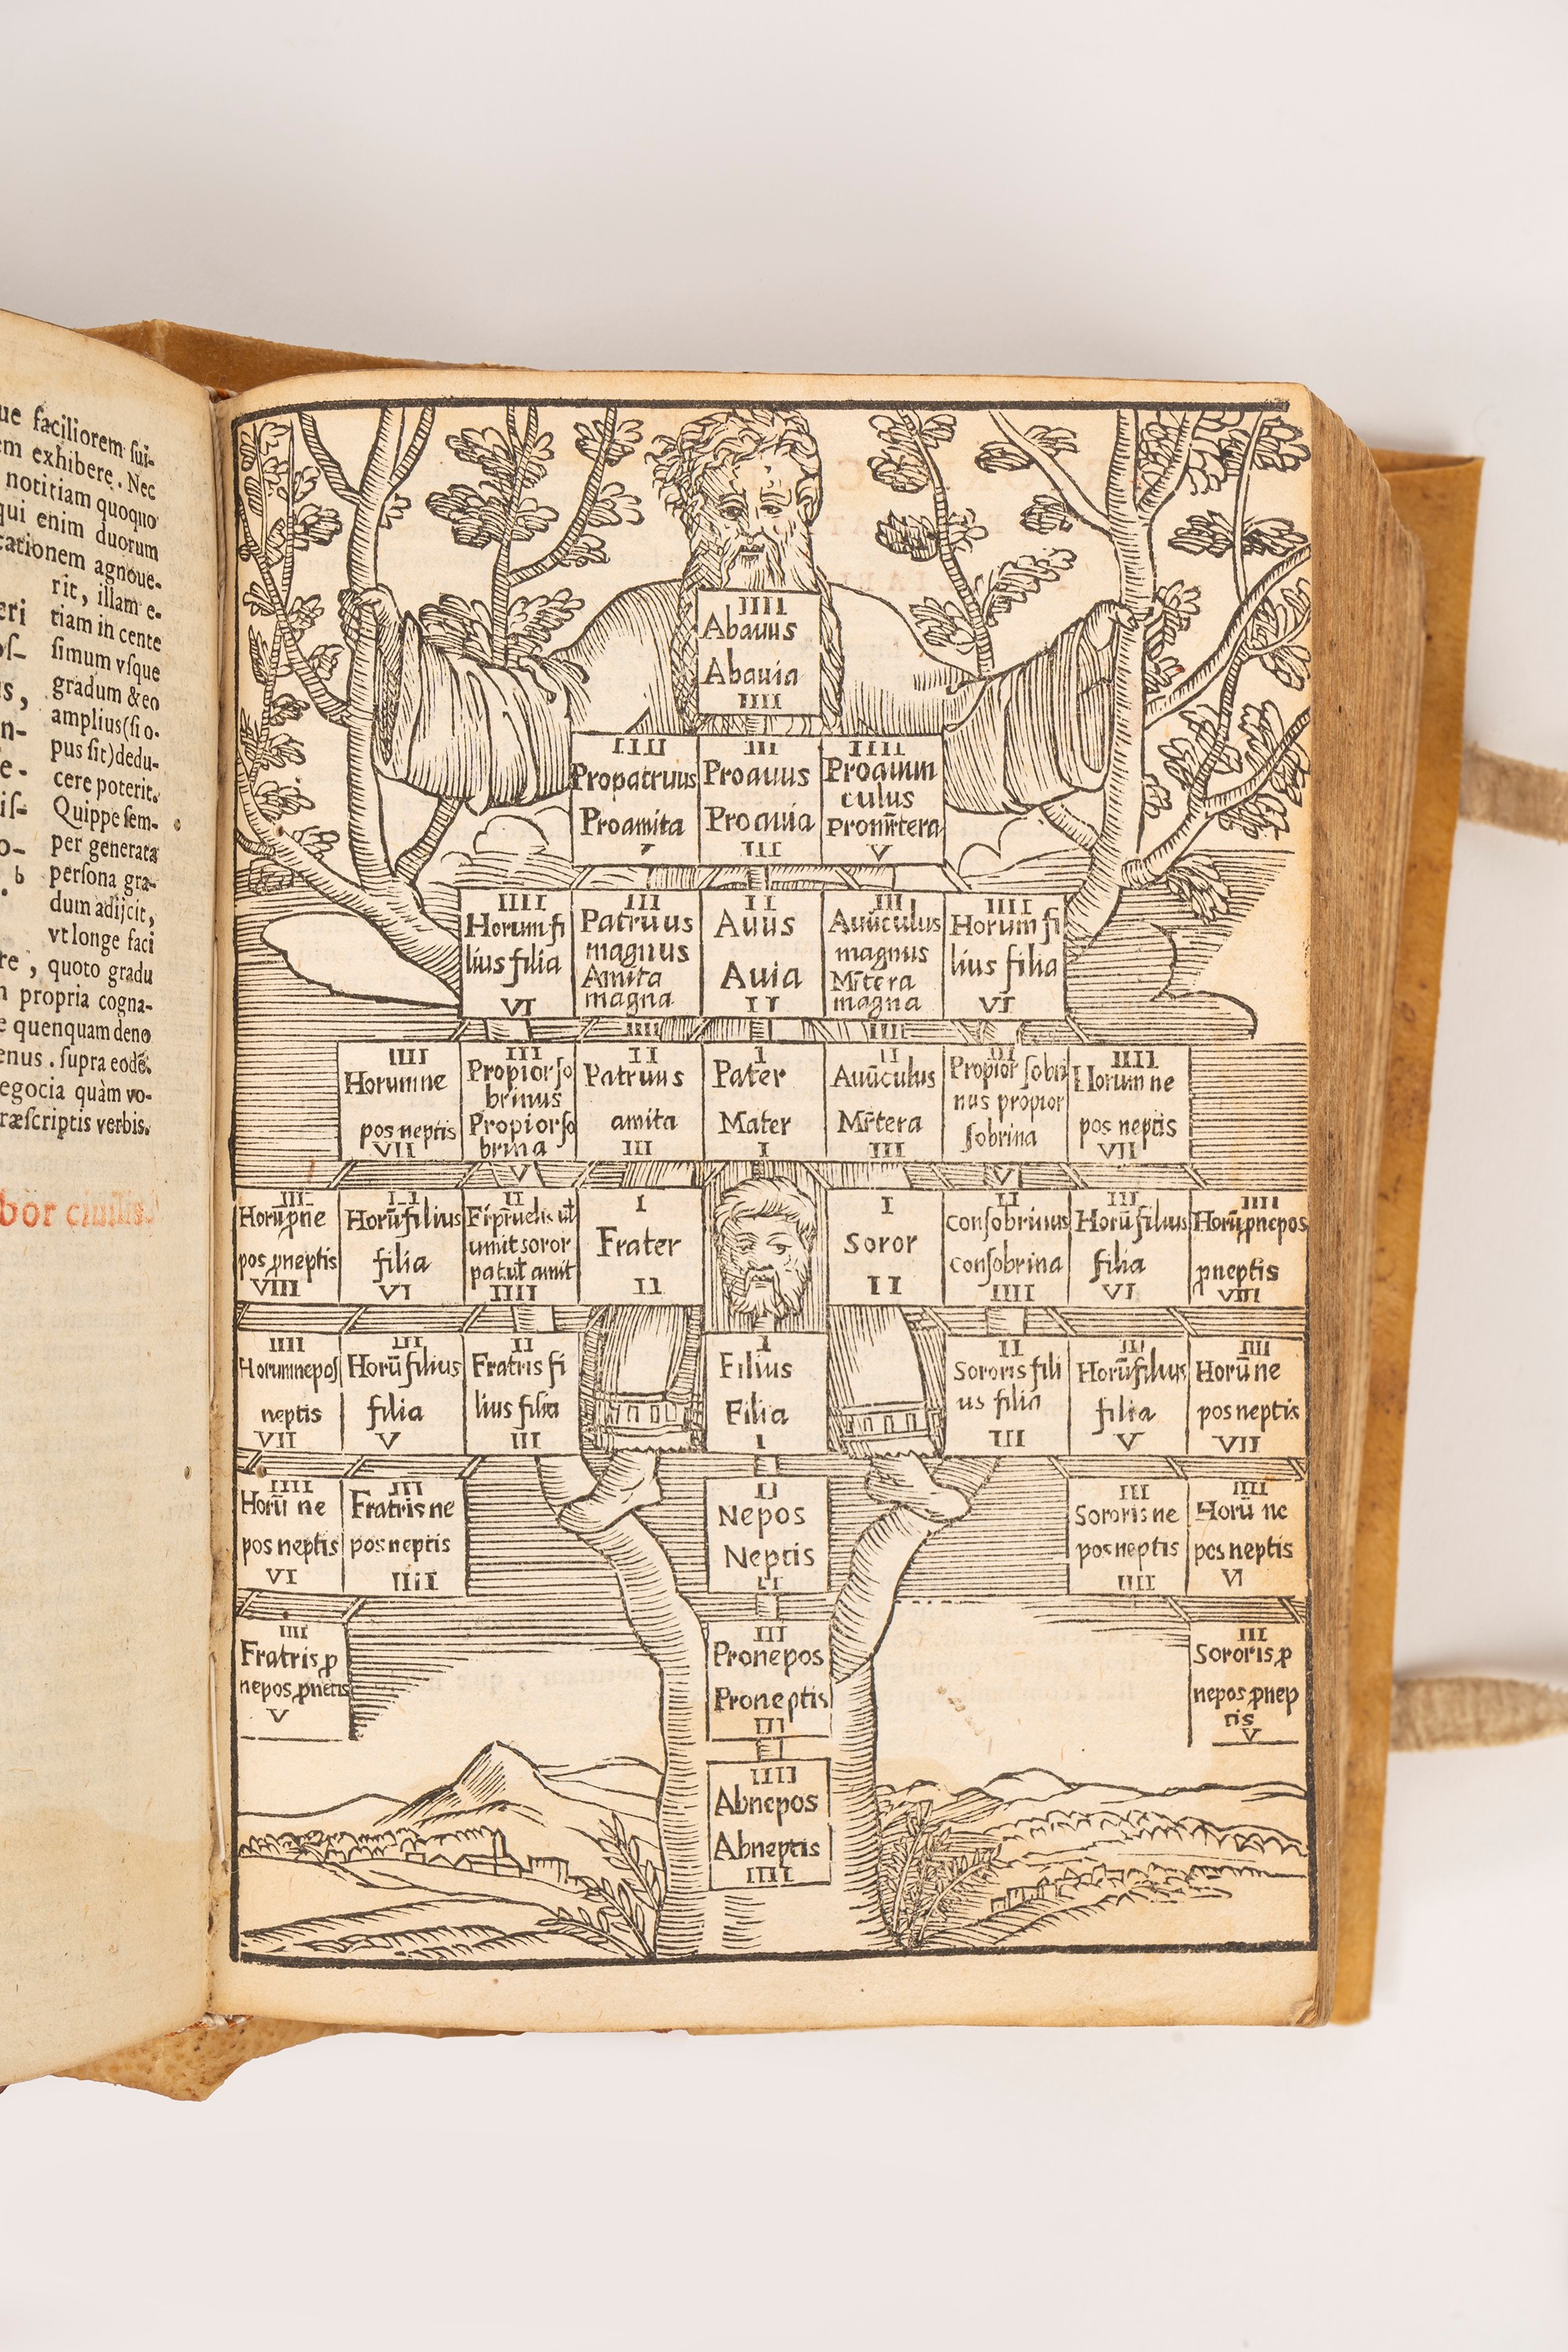 ue faciliorem sui-
em exhibere. Nec
notitiam quoquo
qui enim duorum
cationem agnoue-
rit, illam e-
eri tiam in cente
os- simum vsque
s, gradum & eo
n- amplius (si o-
e- pus sit) dedu-
is- cere poterit.
o- Quippe sem-
b per generata
persona gra-
dum adijcit,
vt longe faci
re, quoto gradu
n propria cogna-
e quenquam deno
enus. supra eodē.
egocia quàm vo-
ræscriptis verbis.
bor ciuilis.
IIII
Abauus
Abauia
IIII
IIII
Propatruus
Proamita
III
Proauus
Proauia
III
IIII
Proauun
culus
Promr̄tera
V
IIII
Horum fi
lius filia
VI
III
Patruus
magnus
Amita
magna
IIII
II
Auus
Auia
II
III
Auūculus
magnus
Mr̄tera
magna
IIII
IIII
Horum fi
lius filia
VI
IIII
Horum ne
pos neptis
VII
III
Propior so
brinus
Propior so
brina
V
II
Patruus
amita
III
I
Pater
Mater
I
II
Auūculus
Mr̄tera
III
III
Propior sobri
nus propior
sobrina
V
IIII
Horum ne
pos neptis
VII
III
Horū ꝓne
pos ꝓneptis
VIII
III
Horū filius
filia
VI
II
amit soror
IIII
I
Frater
II
I
Soror
II
II
Consobrinus
Consobrina
IIII
III
Horū filius
filia
VI
IIII
Horū ꝓnepos
ꝓneptis
VIII
IIII
Horum nepos
neptis
VII
III
Horū filius
filia
V
II
Fratris fi
lius filia
III
I
Filius
Filia
I
II
Sororis fili
us filia
III
III
Horū filius
filia
V
IIII
Horū ne
pos neptis
VII
IIII
Horū ne
pos neptis
VI
III
Fratris ne
pos neptis
IIII
II
Nepos
Neptis
II
III
Sororis ne
pos neptis
IIII
IIII
Horū ne
pos neptis
VI
IIII
Fratris ꝓ
nepos ꝓneptis
V
III
Pronepos
Proneptis
III
III
Sororis ꝓ
nepos ꝓnep
tis
V
IIII
Abnepos
Abneptis
IIII